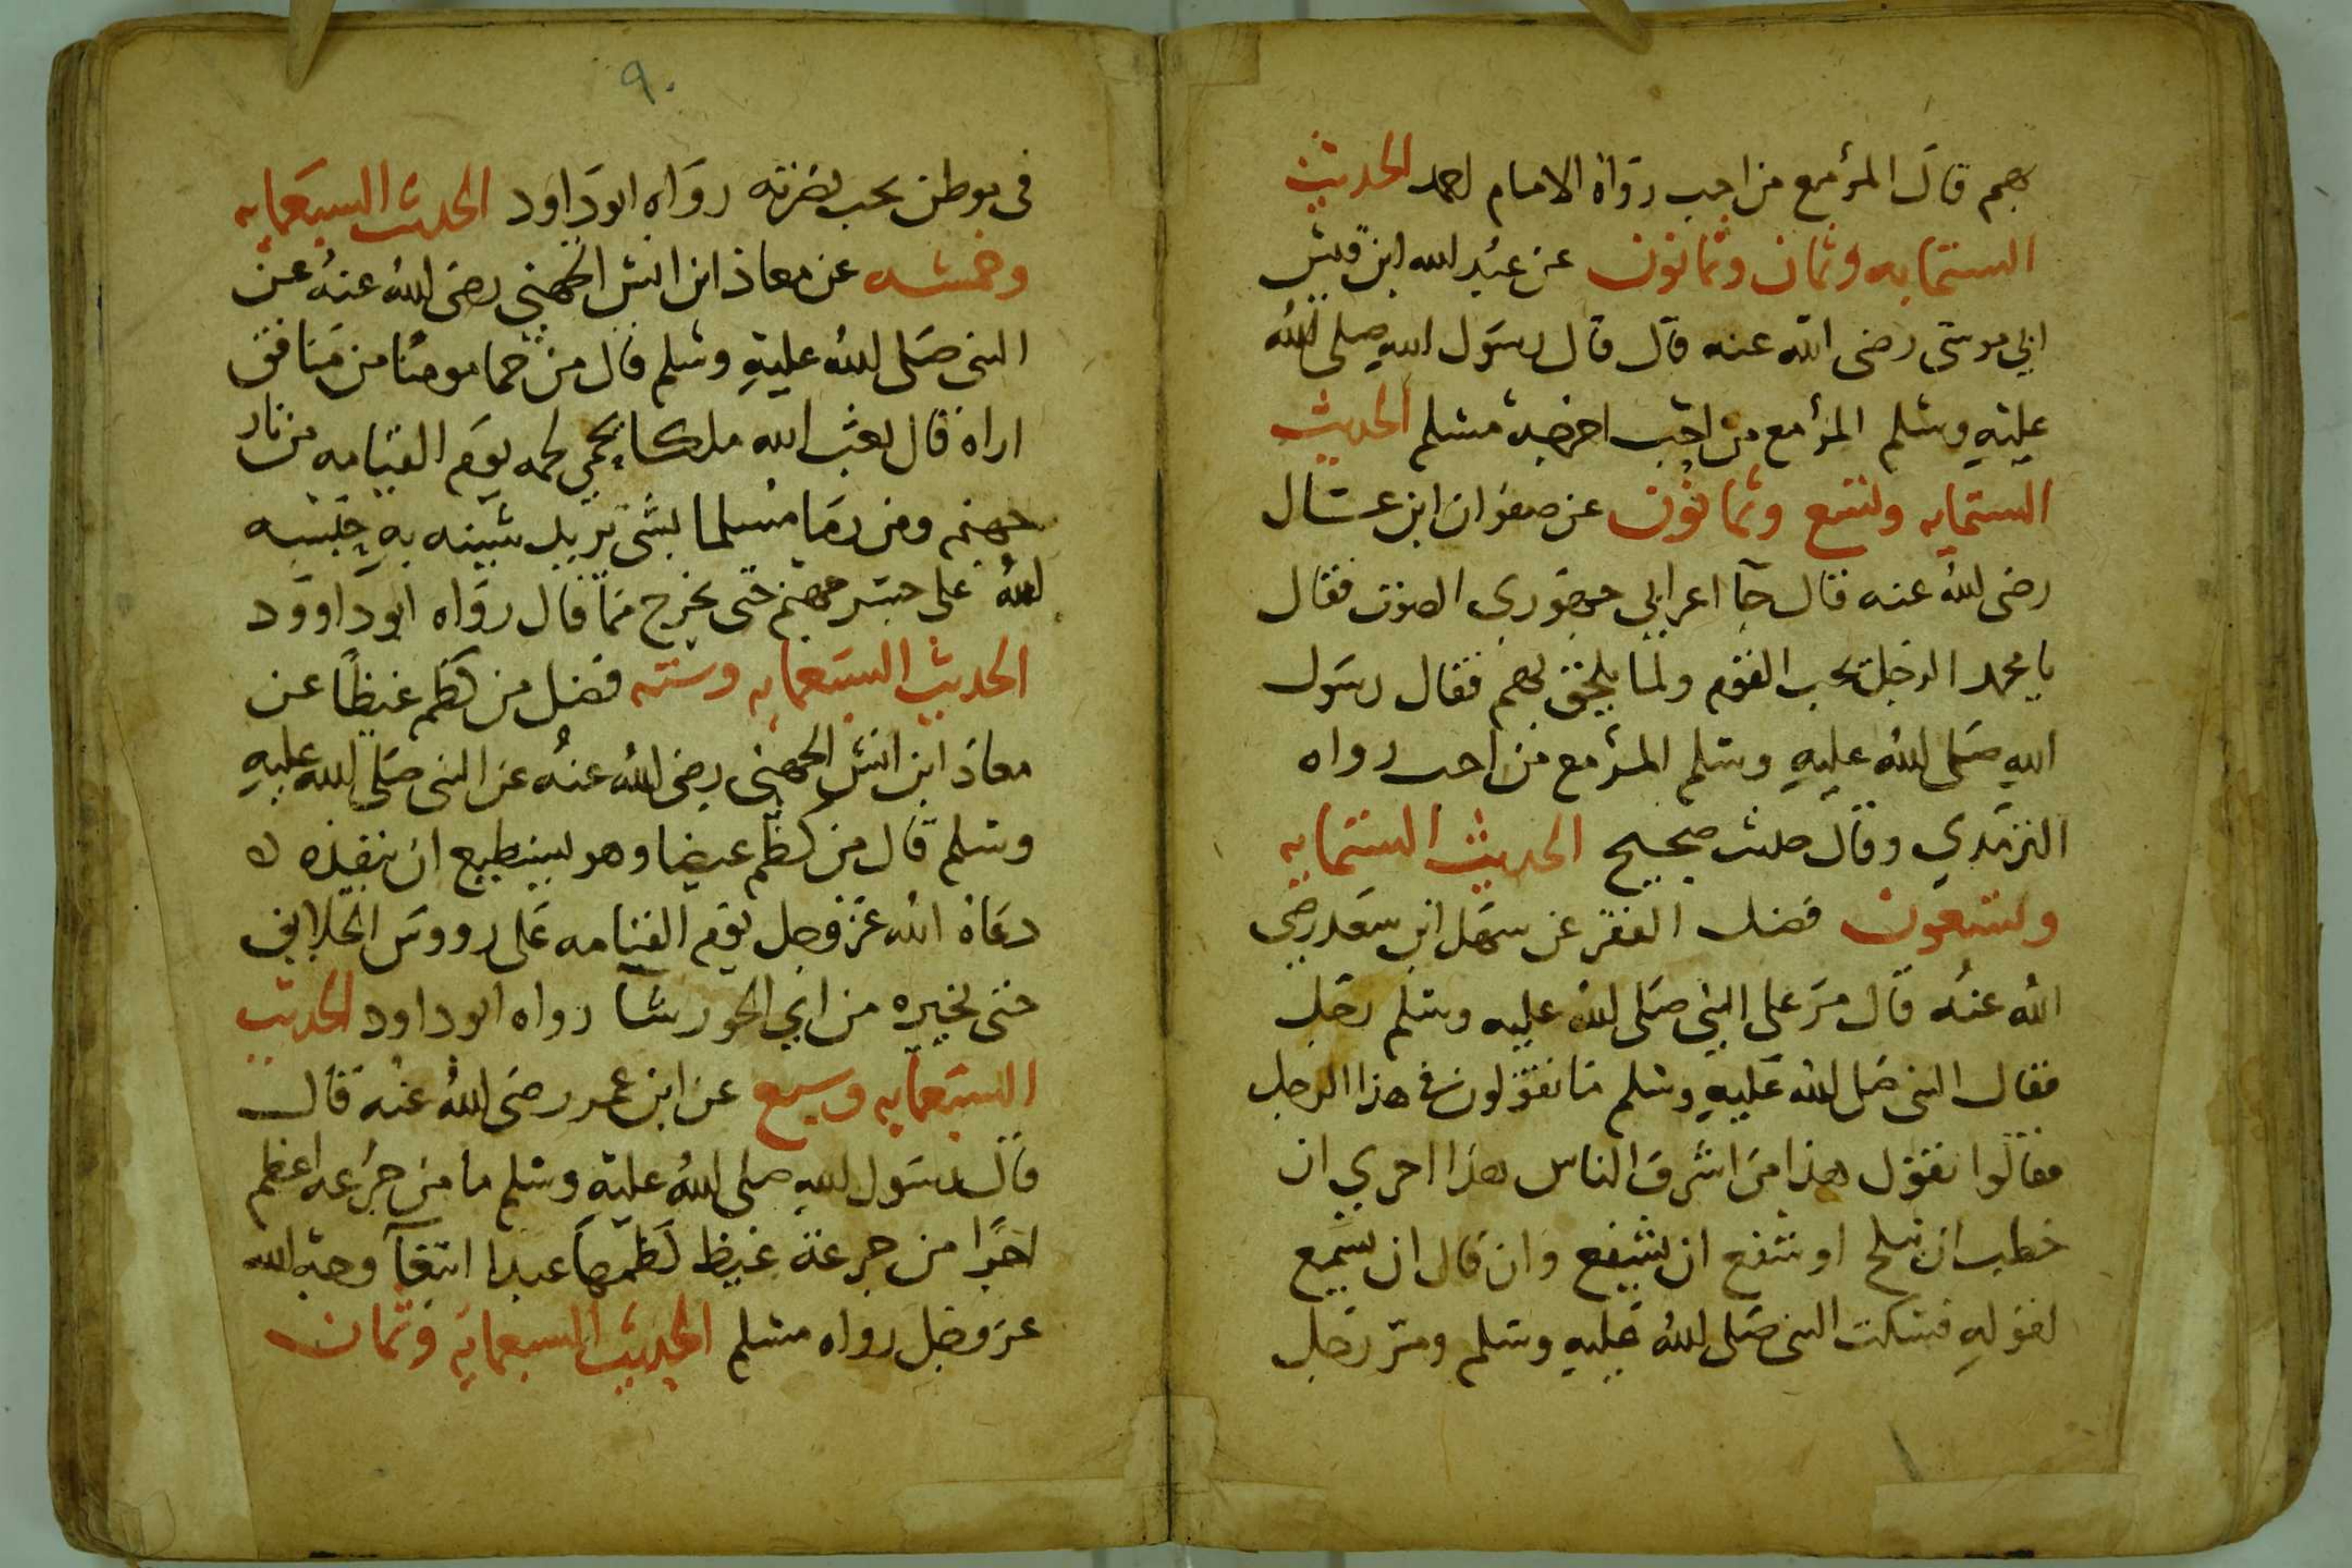 بهم قال المرء مع من احب رواه الامام احمد الحديث
الستمايه وثمان وثمانون عن عبد الله ابن قيس
ابي موسى رضى الله عنه قال قال رسول الله صلى الله
عليه وسلم المرء مع من احب اخرجه مسلم الحديث
الستمايه وتسع وثمانون عن صفوان ابن عسال
رضى الله عنه قال جآ اعرابي جهوري الصوت فقال
يا محمد الرجل يحب القوم ولما يلحق بهم فقال رسول
الله صلى الله عليه وسلم المرء مع من احب رواه
الترمدي وقال حديث صحيح الحديث الستمايه
وتسعون فضل الفقر عن سهل ابن سعد رضى
الله عنه قال مر على النبي صلى الله عليه وسلم رجل
فقال النبى صلى الله عليه وسلم ما تقولون فى هذا الرجل
فقالوا نقول هذا من اشرف الناس هذا احرى ان
خطب ان ينكح او شفع ان يشفع وان قال ان يسمع
لقوله فسكت النبى صلى الله عليه وسلم ومر رجل
٩٠
فى موطن يحب نصرته رواه ابو داود الحديث السبعمايه
وخمسه عن معاذ ابن انس الجهني رضى الله عنه عن
النبى صلى الله عليه وسلم قال من حما مومنا من منافق
اراه قال بعث الله ملكا يحمي لحمه يوم القيامه من نار
جهنم ومن رما مسلما بشى يريد شينه به حبسه
الله على جسر جهنم حتى يخرج مما قال رواه ابو داوود
الحديث السبعمايه وسته فضل من كظم غيظا عن
معاذ ابن انس الجهني رضى الله عنه عن النبى صلى الله عليه
وسلم قال من كظم غيضا وهو يستطيع ان ينفذه
دعاه الله عز وجل يوم القيامه على رووس الخلايق
حتى يخيره من اي الحور شآ رواه ابو داود الحديث
السبعمايه وسبع عن ابن عمر رضى الله عنه قال
قال رسول الله صلى الله عليه وسلم ما من جرعه اعظم
اجرا من جرعة غيظ كظمها عبدا ابتغآ وجه الله
عز وجل رواه مسلم الحديث السبعمايه وثمان